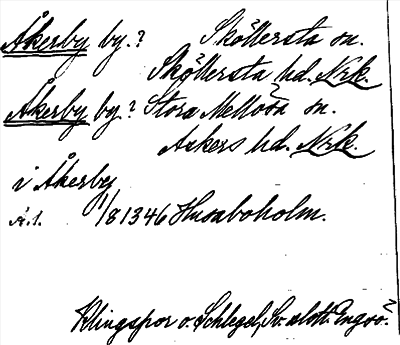 Åkerby by.? Sköllersta sn.
Sköllersta hd. Nrk.
Åkerby by? Stora Mellösa sn.
Askers hd. Nrk.
i Åkerby
A.1. 1/8 1346 Husaboholm.
Klingspor o. Schlegel, Sv. slott. Engsö.?